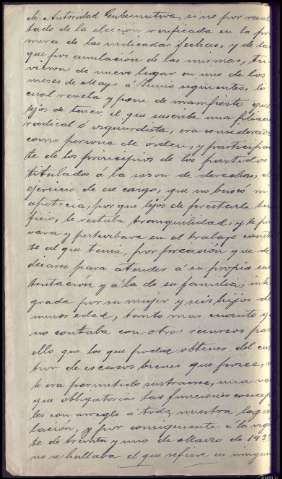 de Autoridad Gubernativa, si no por resul
tado de la eleccion verificada en la pri
mera de las indicadas fechas, y de la
que por anulacion de las mismas, tu
vieron de nuevo lugar en uno de los
meses de Mayo a Junio siguientes, lo
cual revela y pone de manifiesto que
lejos de tener el que suscribe una filiacion
radical é izquierdista, era considerado
como persona de orden, y participan
te de los principios de los partidos
titulados á la sazon de derechas, el
ejercicio de su cargo, que no buscó ni
apetecia, por que lejos de prestarle bene
ficio, le restaba tranquilidad, y le pri
vaba y perturbaba en el trabajo
to al que tenia, por precision que de
dicarse para atender á su propia sus
tentacion y á la de su familia, inte
grada por su mujer y seis hijos de
menor edad, tanto mas cuanto que
no contaba con otros recursos para
ello que los que podia obtener del cul
tivo de escasos bienes que posee,
le era permitido sustraerse, una vez
que obligatorias las funciones conceji
les con arreglo á toda nuestra legis
lación, y por consiguiente á la
te de treinta y uno de Marzo de 193
no se hallaba el que refiere en ninguna